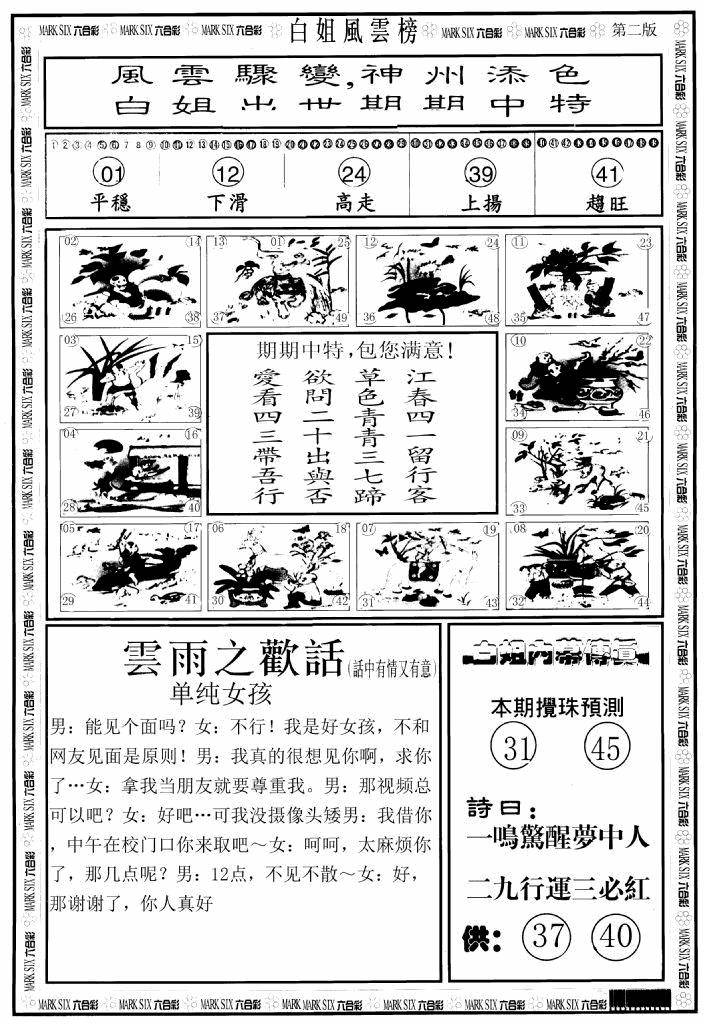 MARK SIX 六合彩 MARK SIX 六合彩 MARK SIX 六合彩 白姐風雲榜 MARK SIX 六合彩 MARK SIX 六合彩 第二版
風雲驟變,神州添色
白姐出世期期中特
01 12 24 39 41
平穩 下滑 高走 上揚 趨旺
02 14 26 38
13 01 25 37 49
12 24 36 48
11 23 35 47
03 15 27 39
10 22 34 46
04 16 28 40
09 21 33 45
05 17 29 41
06 18 30 42
07 19 31 43
08 20 32 44
期期中特,包您满意!
江春四一留行客
草色青青三七蹄
欲問二十出與否
愛看四三帶吾行
雲雨之歡話(話中有情又有意)
单纯女孩
男：能见个面吗？女：不行！我是好女孩，不和
网友见面是原则！男：我真的很想见你啊，求你
了…女：拿我当朋友就要尊重我。男：那视频总
可以吧？女：好吧…可我没摄像头矮男：我借你
，中午在校门口你来取吧～女：呵呵，太麻烦你
了，那几点呢？男：12点，不见不散～女：好，
那谢谢了，你人真好
白姐内幕傳真
本期攪珠預測
31 45
詩曰：
一鳴驚醒夢中人
二九行運三必紅
供： 37 40
MARK SIX 六合彩 MARK SIX 六合彩 MARK SIX 六合彩 MARK SIX 六合彩 MARK SIX 六合彩 MARK SIX 六合彩 MARK SIX 六合彩